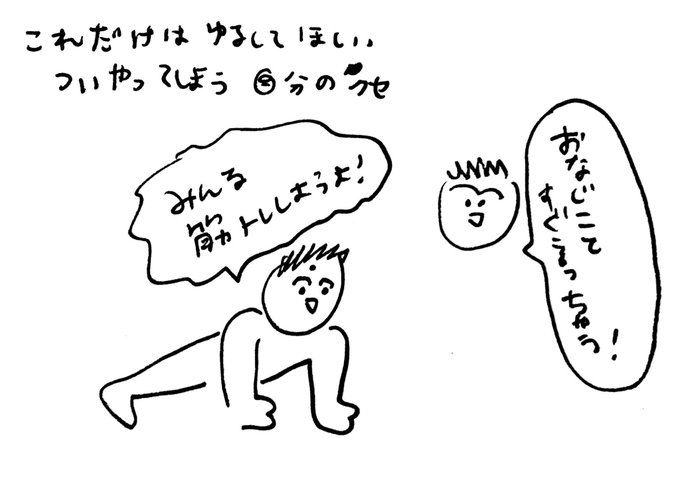 これだけは ゆるしてほしい、
ついやってしまう 自分のクセ
みんな
筋トレしようよ!
おなじこと
すぐ言っちゃう!